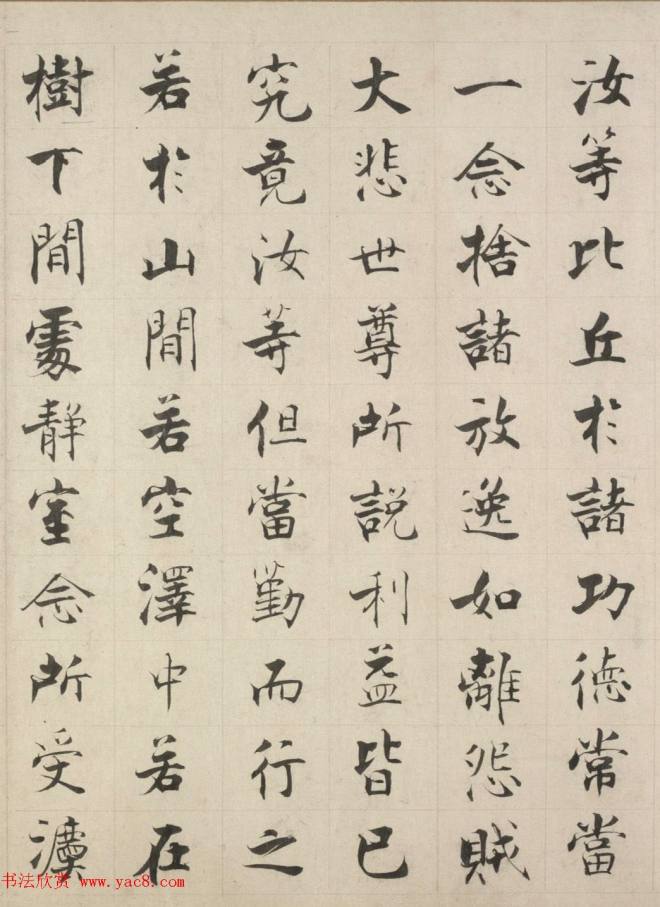 汝等比丘於諸功德常當
一念捨諸放逸如離怨賊
大悲世尊所說利益皆已
究竟汝等但當勤而行之
若於山間若空澤中若在
樹下間處靜室念所受灋
书法欣赏 www.yac8.com